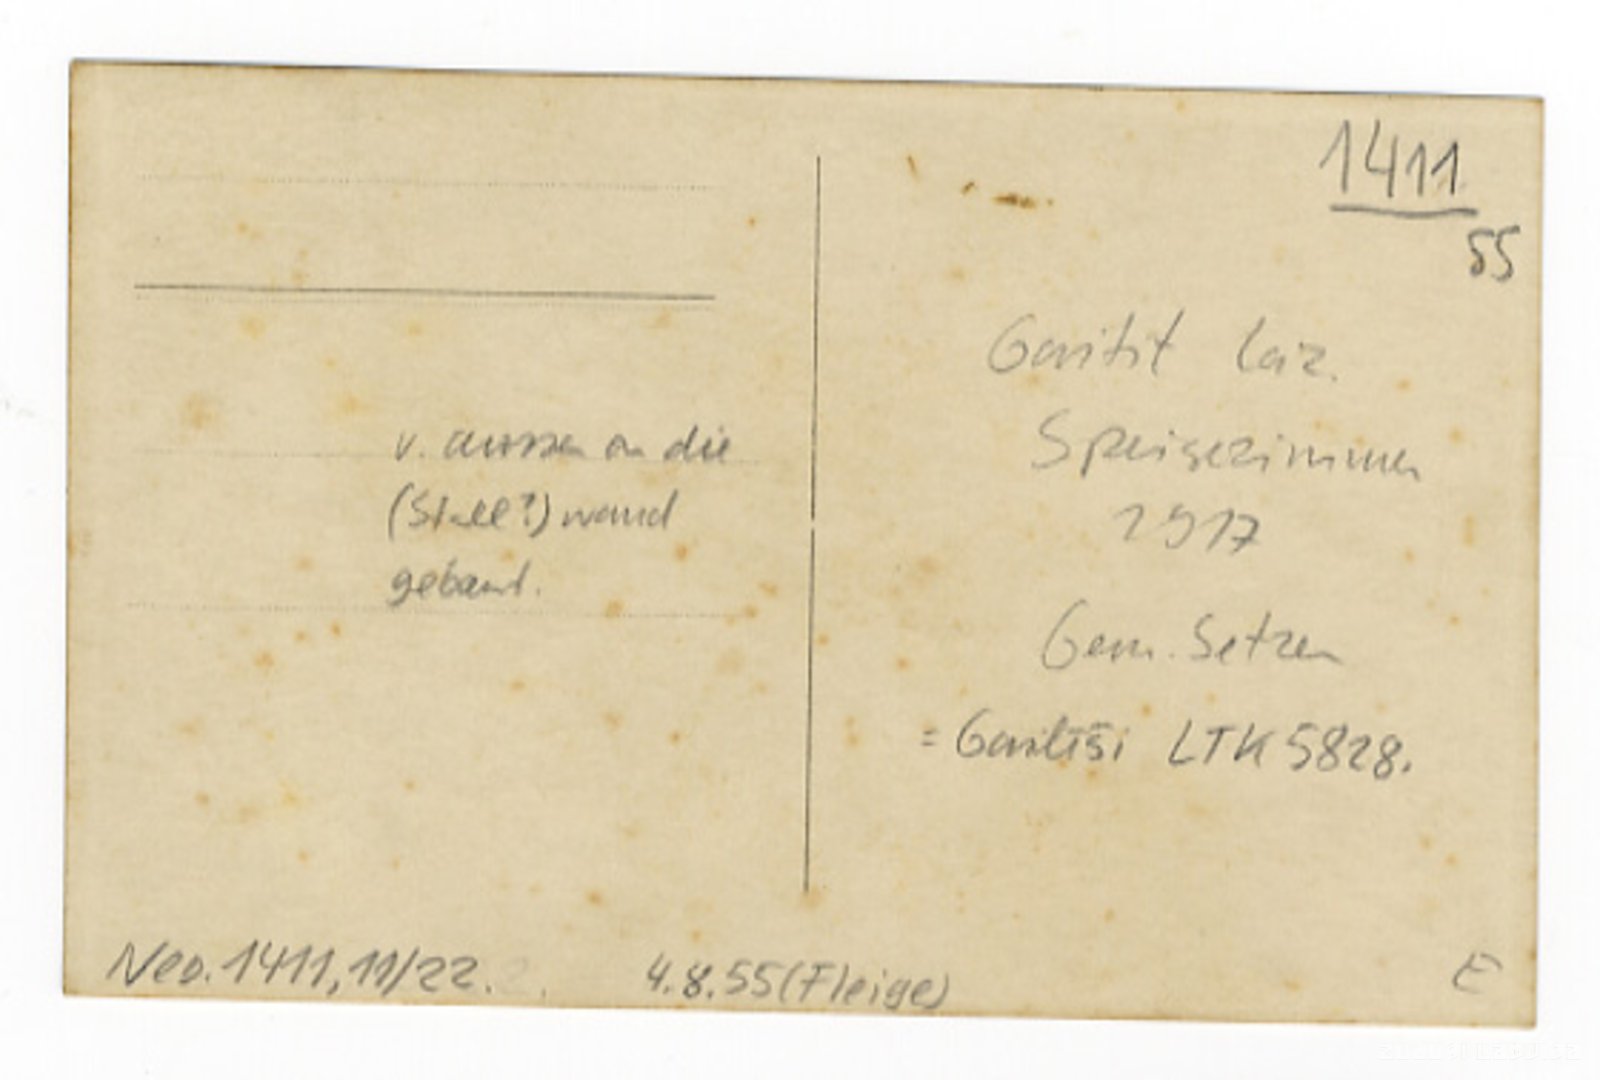 1411
55
v. aussen an die
(Stall?) wand
gebaut.
Gavitit Laz.
Speisezimmer
1917
Gem. Setzen
= Gavitiši LTK 5828.
Neg. 1411, 11/22.
4.8.55 (Fleige)
E